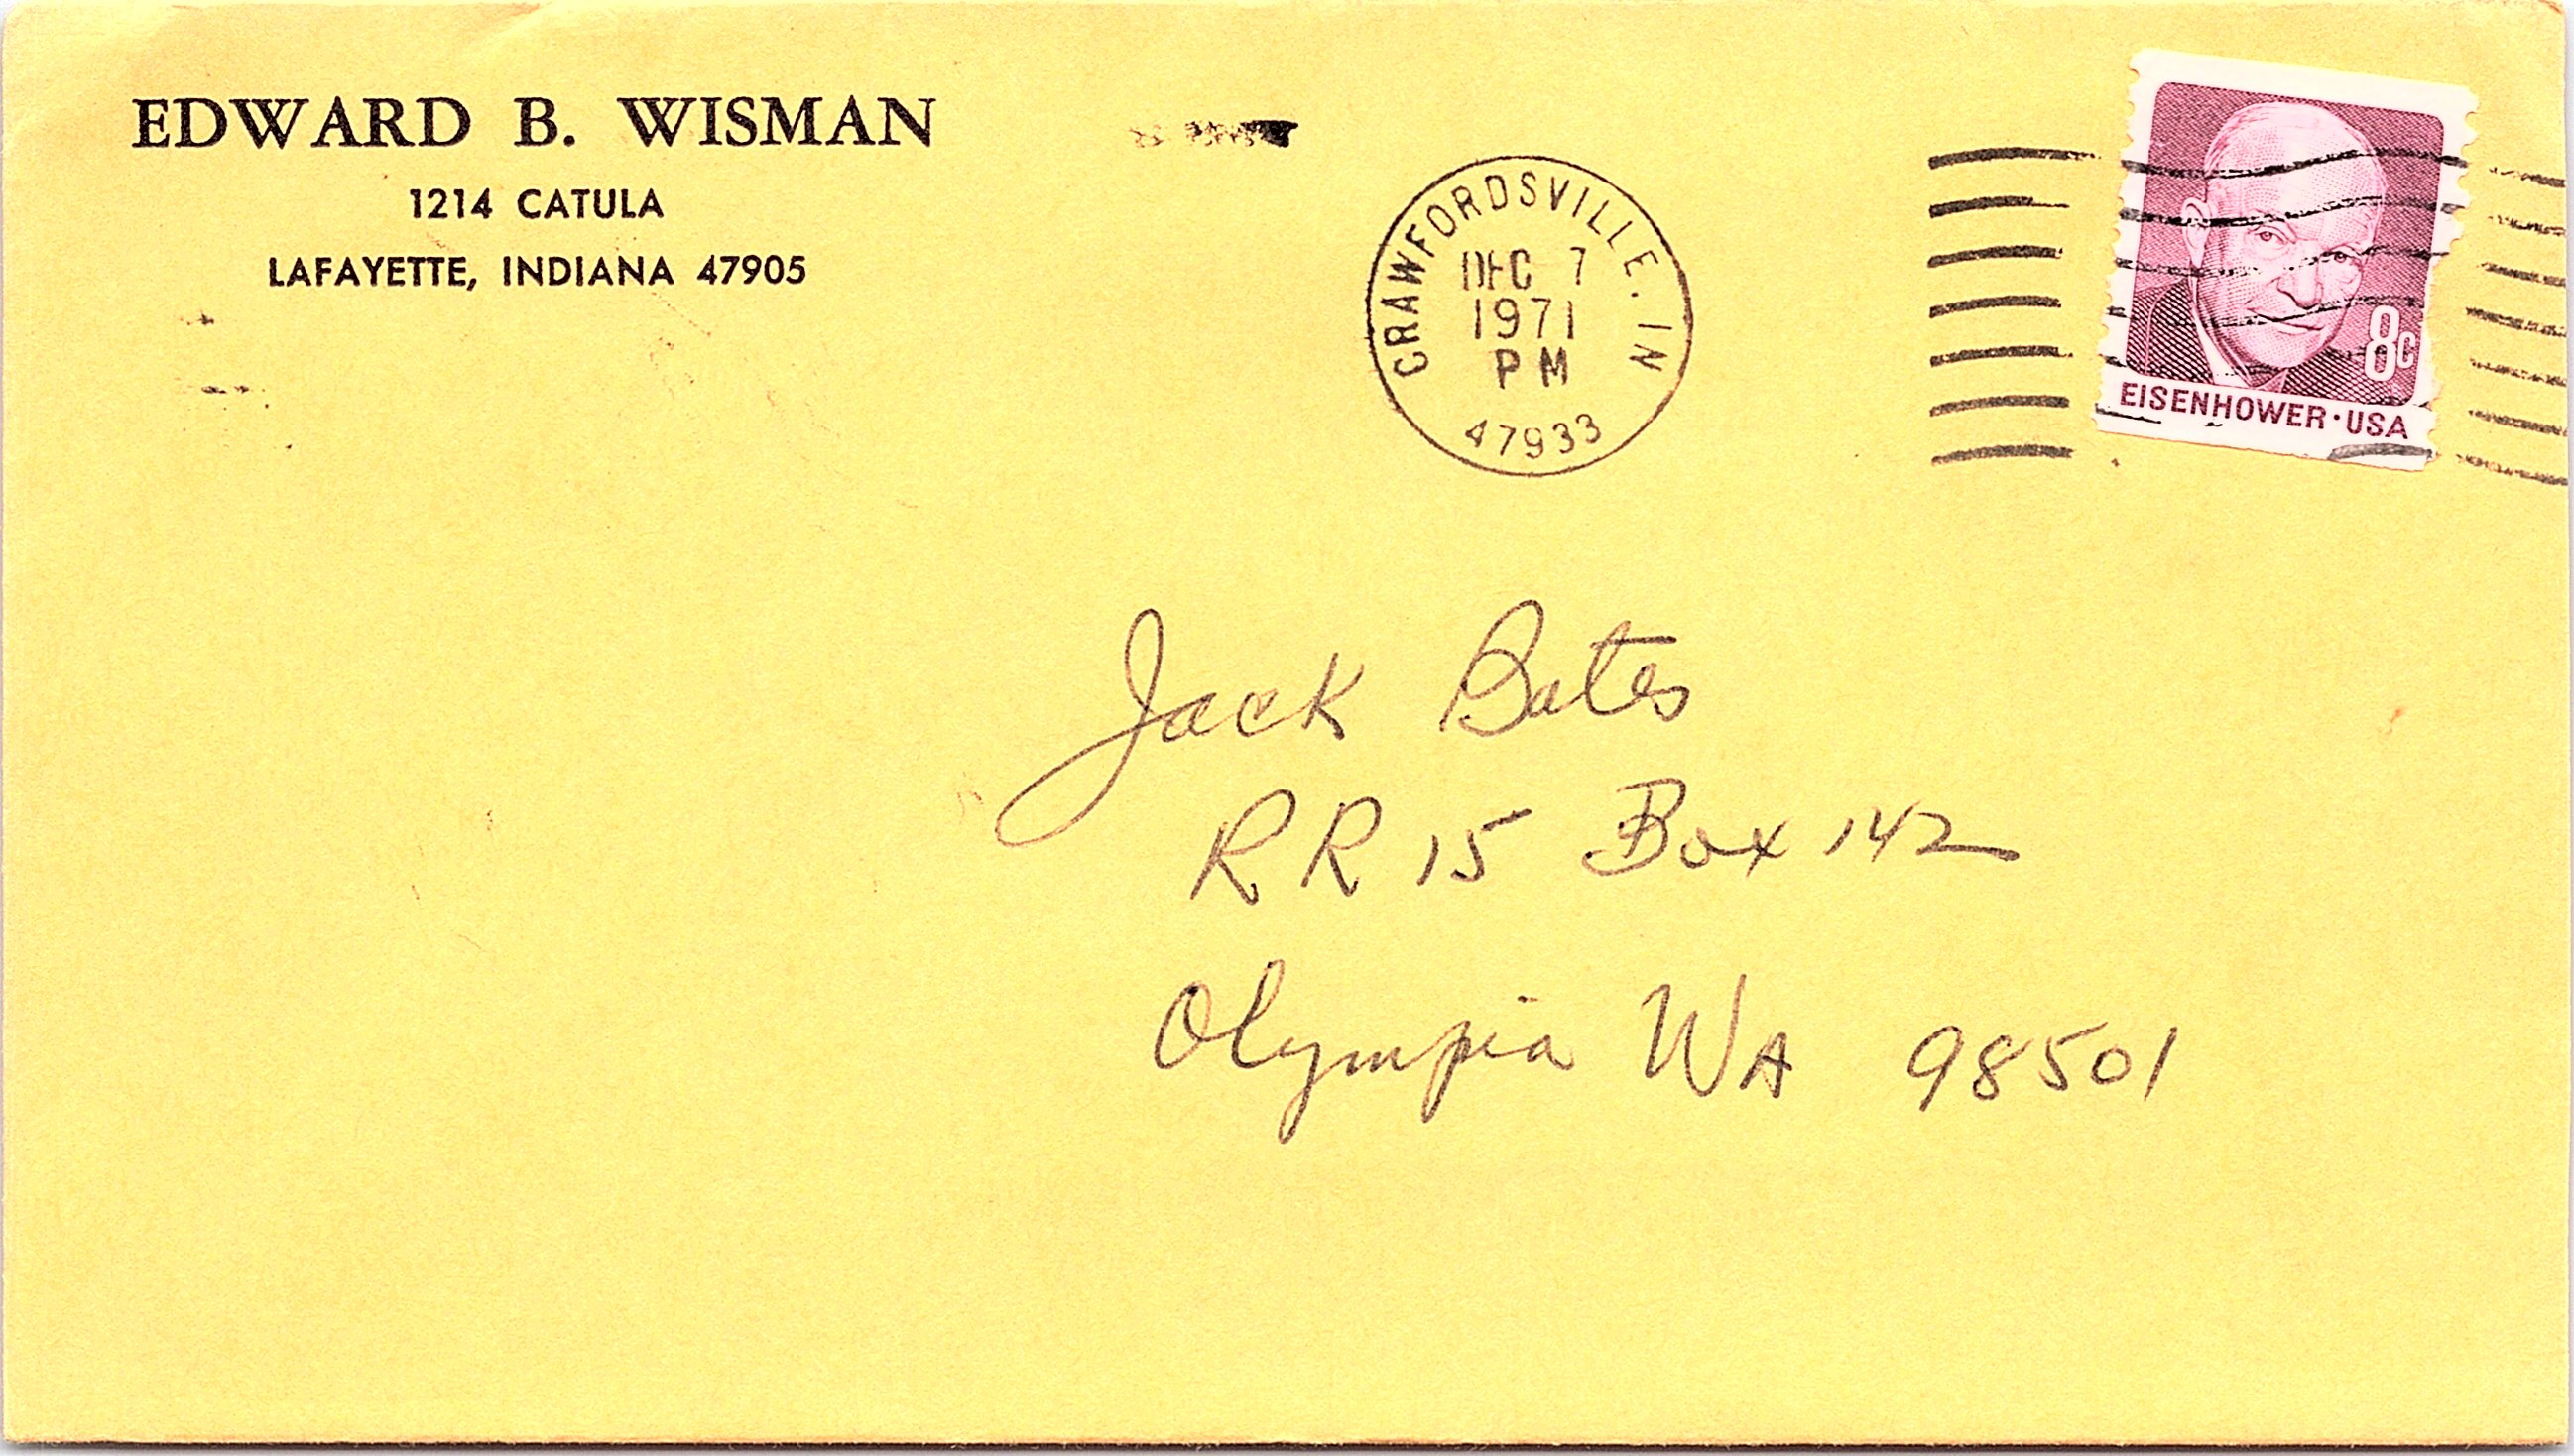 EDWARD B. WISMAN
1214 CATULA
LAFAYETTE, INDIANA 47905
CRAWFORDSVILLE. IN
DEC 7
1971
PM
47933
8c
EISENHOWER·USA
Jack Bates
RR 15 Box 142
Olympia WA 98501